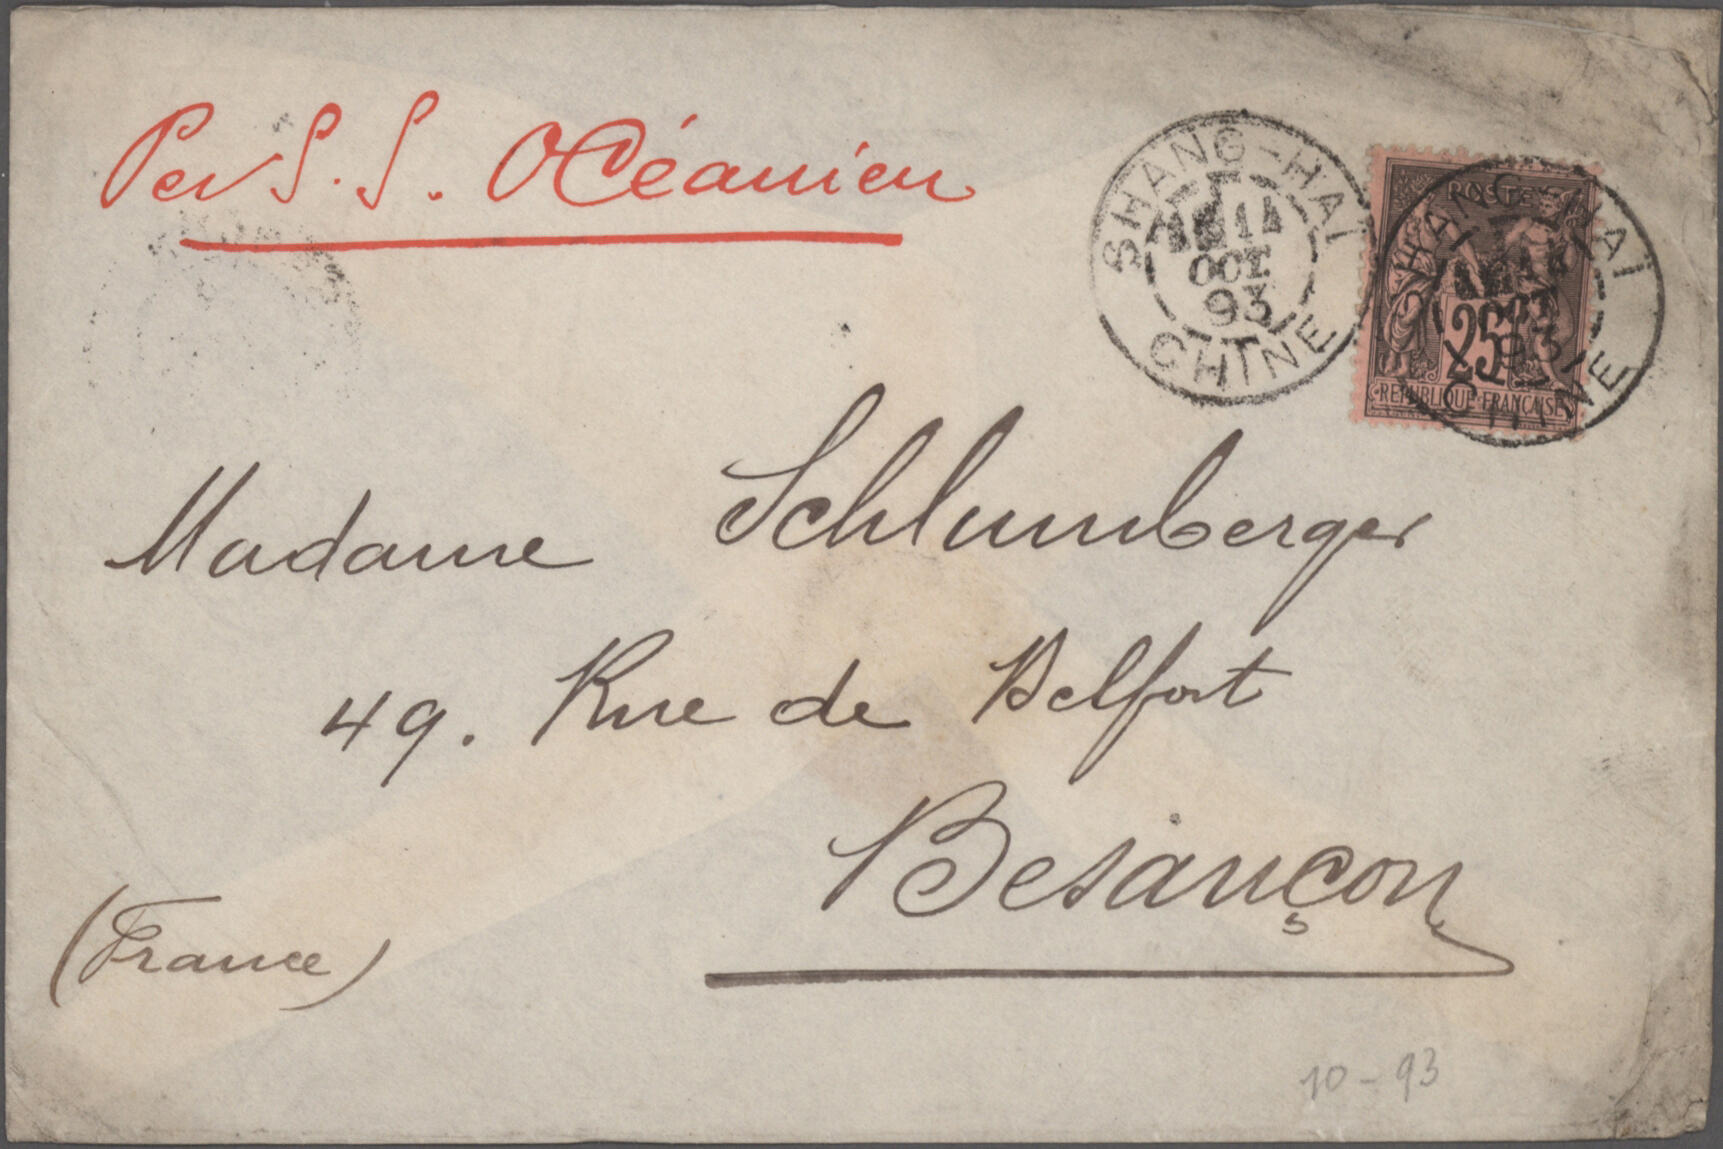 Per S. S. Océanien
SHANG-HAÏ
14
OCT.
93
CHINE
POSTE
25
REPUBLIQUE FRANÇAISE
SHANG-HAÏ
14
OCT.
93
CHINE
Madame Schlumberger
49. Rue de Belfort
Besançon
(France)
10-93